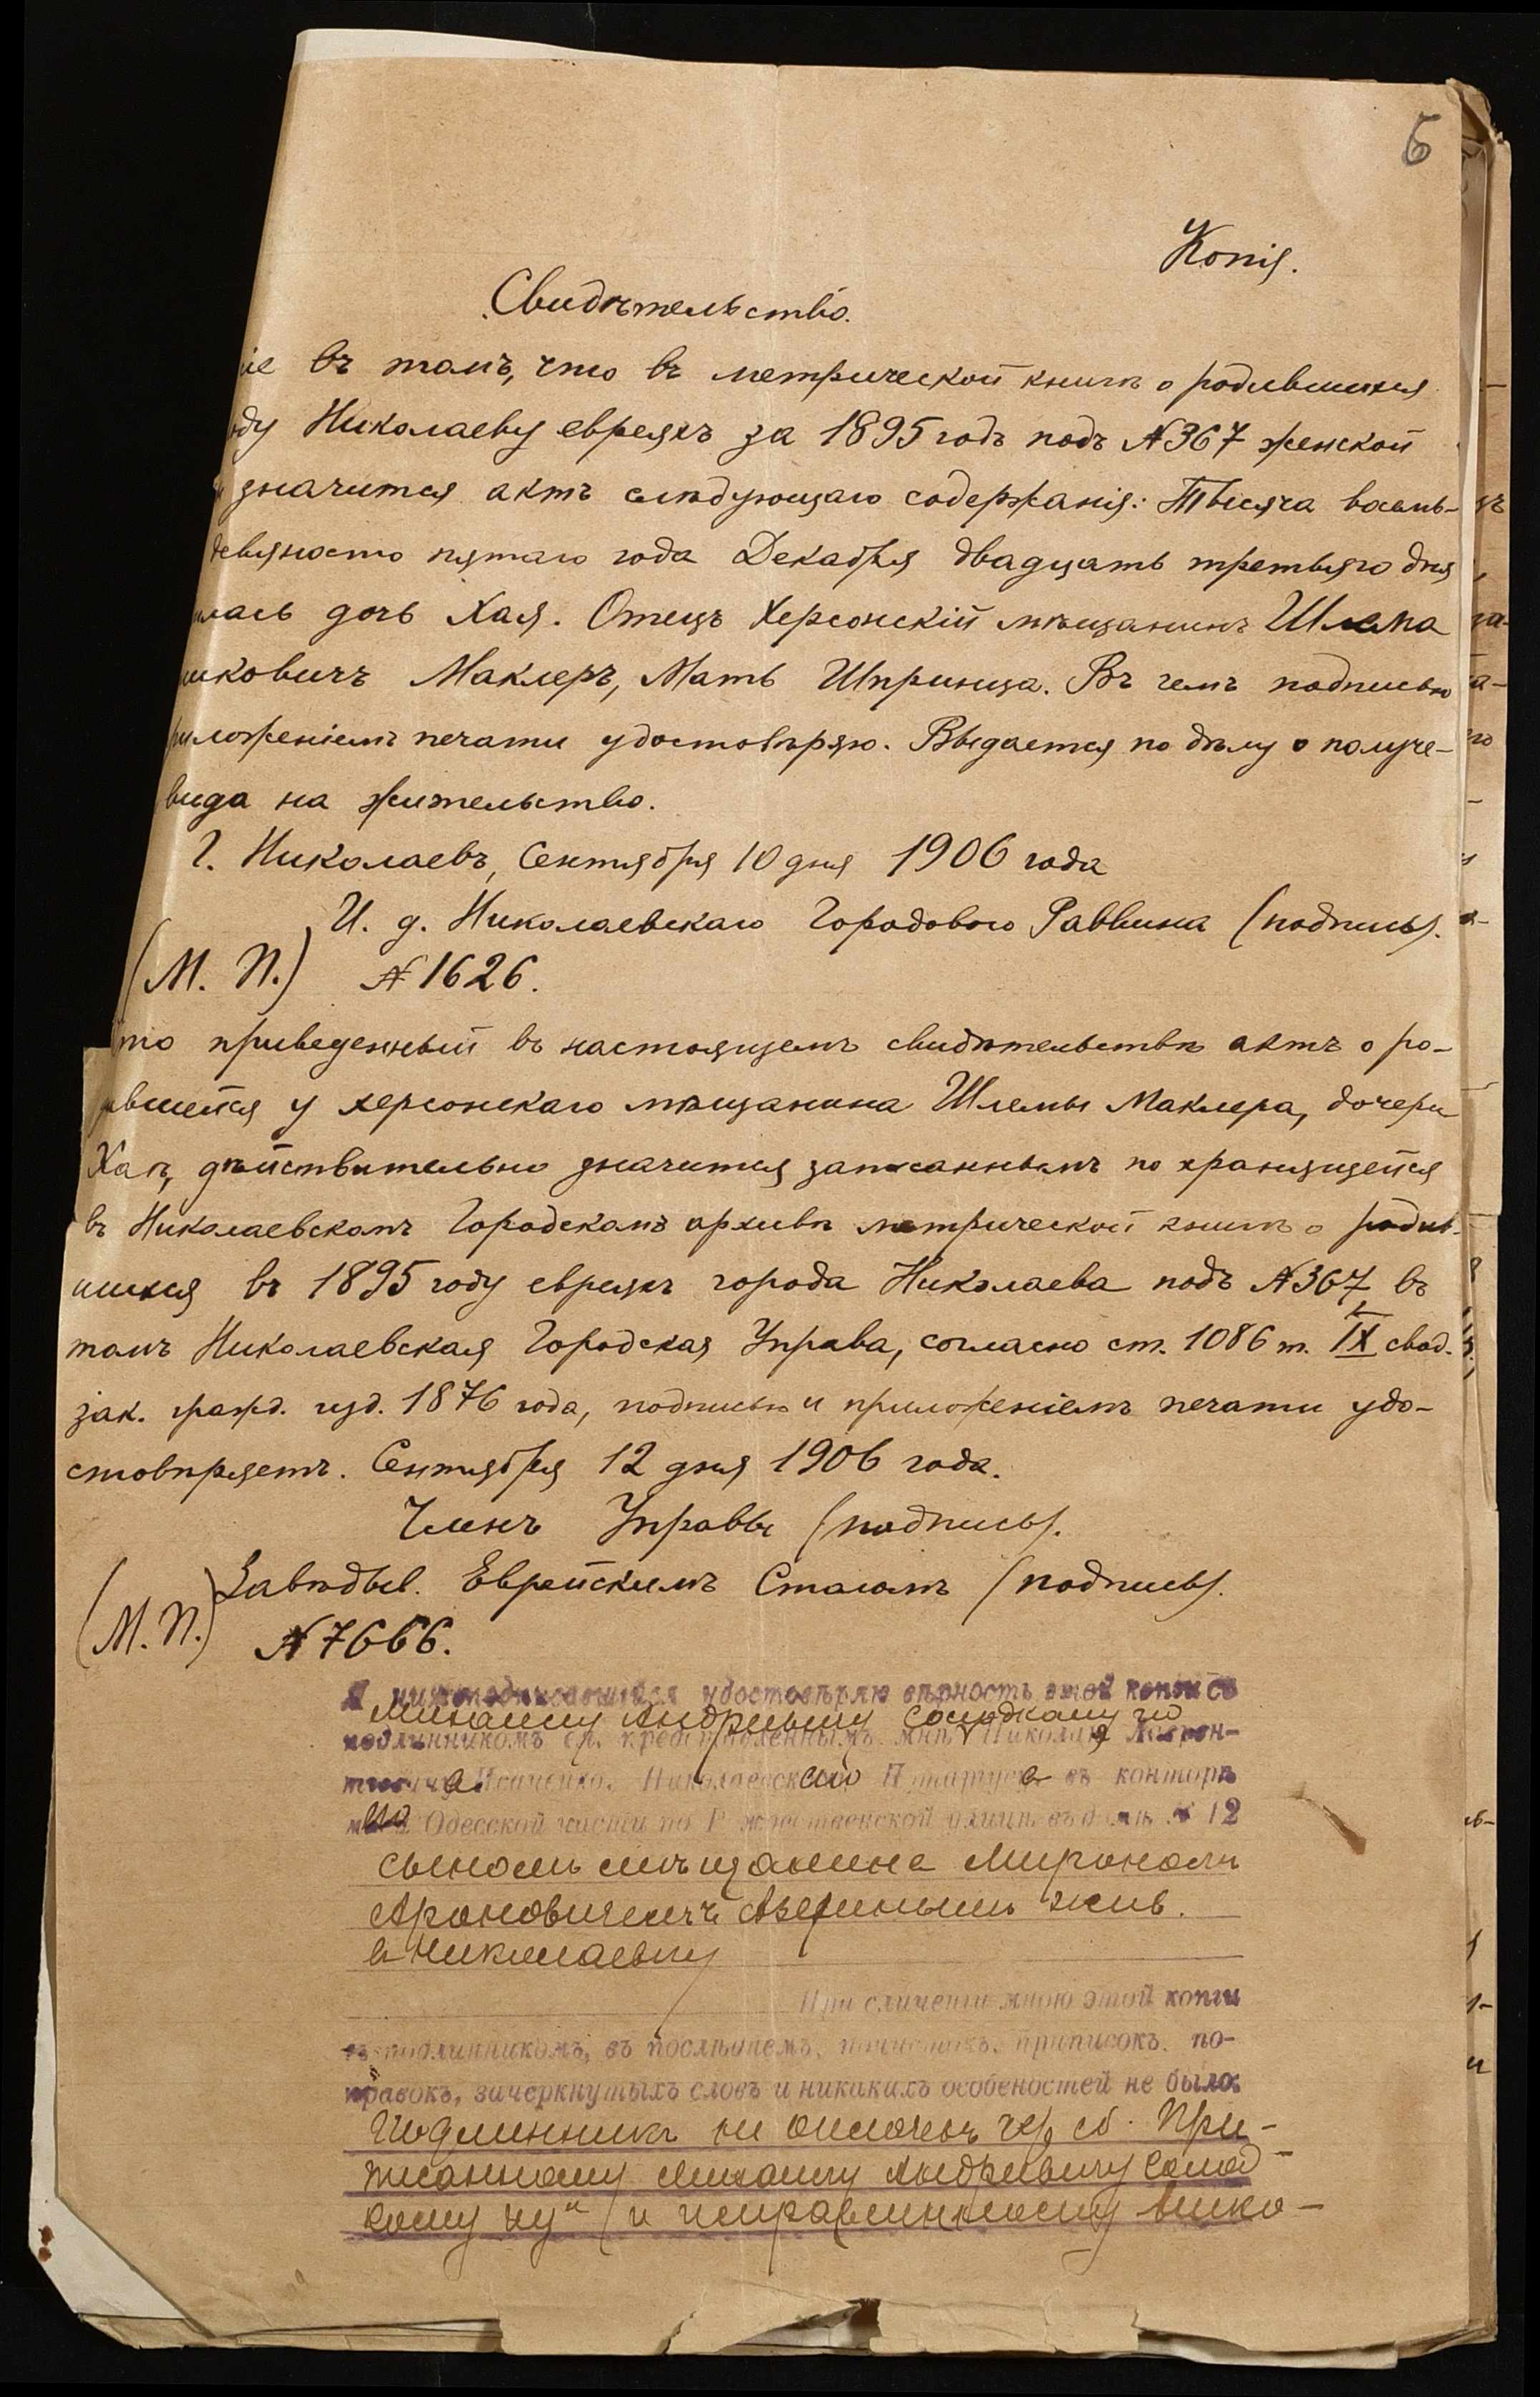 6
Копія.
Свидѣтельство.
іе въ томъ, что въ метрической книгѣ о родившихся
ду Николаеву евреяхъ за 1895 годъ подъ № 367 женской
значится актъ слѣдующаго содержанія: Тысяча восемь-
девяносто пятаго года Декабря двадцать третьяго дня
лась дочь Хая. Отецъ Херсонскій мѣщанинъ Шлема
иковичъ Маклеръ, Мать Шпринца. Въ чемъ подписью
риложеніемъ печати удостовѣряю. Выдается по дѣлу о получе-
вида на жительство.
Г. Николаевъ, Сентября 10 дня 1906 года
И. д. Николаевскаго Городового Раввина (подпись).
(М. П.) № 1626.
то приведенный въ настоящемъ свидѣтельствѣ актъ о ро-
вшейся у херсонскаго мѣщанина Шлемы Маклера, дочери
Хаѣ, дѣйствительно значится записаннымъ по хранящейся
въ Николаевскомъ Городскомъ архивѣ метрической книгѣ о родив-
шихся въ 1895 году евреяхъ города Николаева подъ № 367 въ
томъ Николаевская Городская Управа, согласно ст. 1086 т. IX свод.
зак. гражд. изд. 1876 года, подписью и приложеніемъ печати удо-
стовѣряетъ. Сентября 12 дня 1906 года.
Членъ Управы (подпись).
Завѣдыв. Еврейскимъ Столомъ (подпись).
(М. П.) № 7666.
Я нижеподписавшійся удостовѣряю вѣрность этой копіи съ
Михаилу Андреевичу
подлинникомъ ея, представленнымъ мнѣ Николая Лаврен-
Николаевскаго Нотаріуса въ конторѣ
Одесской части по Рождественской улицѣ въ домѣ № 12
сыномъ мѣщанина Мирономъ
Ароновичемъ жив.
въ Николаевѣ
При сличеніи мною этой копіи
съ подлинникомъ, въ послѣднемъ, почистокъ, приписокъ, по-
правокъ, зачеркнутыхъ словъ и никакихъ особеностей не было.
Подлинникъ не оплоченъ гер. сб. При-
писанному Михаилу Андреевичу
и исправленному